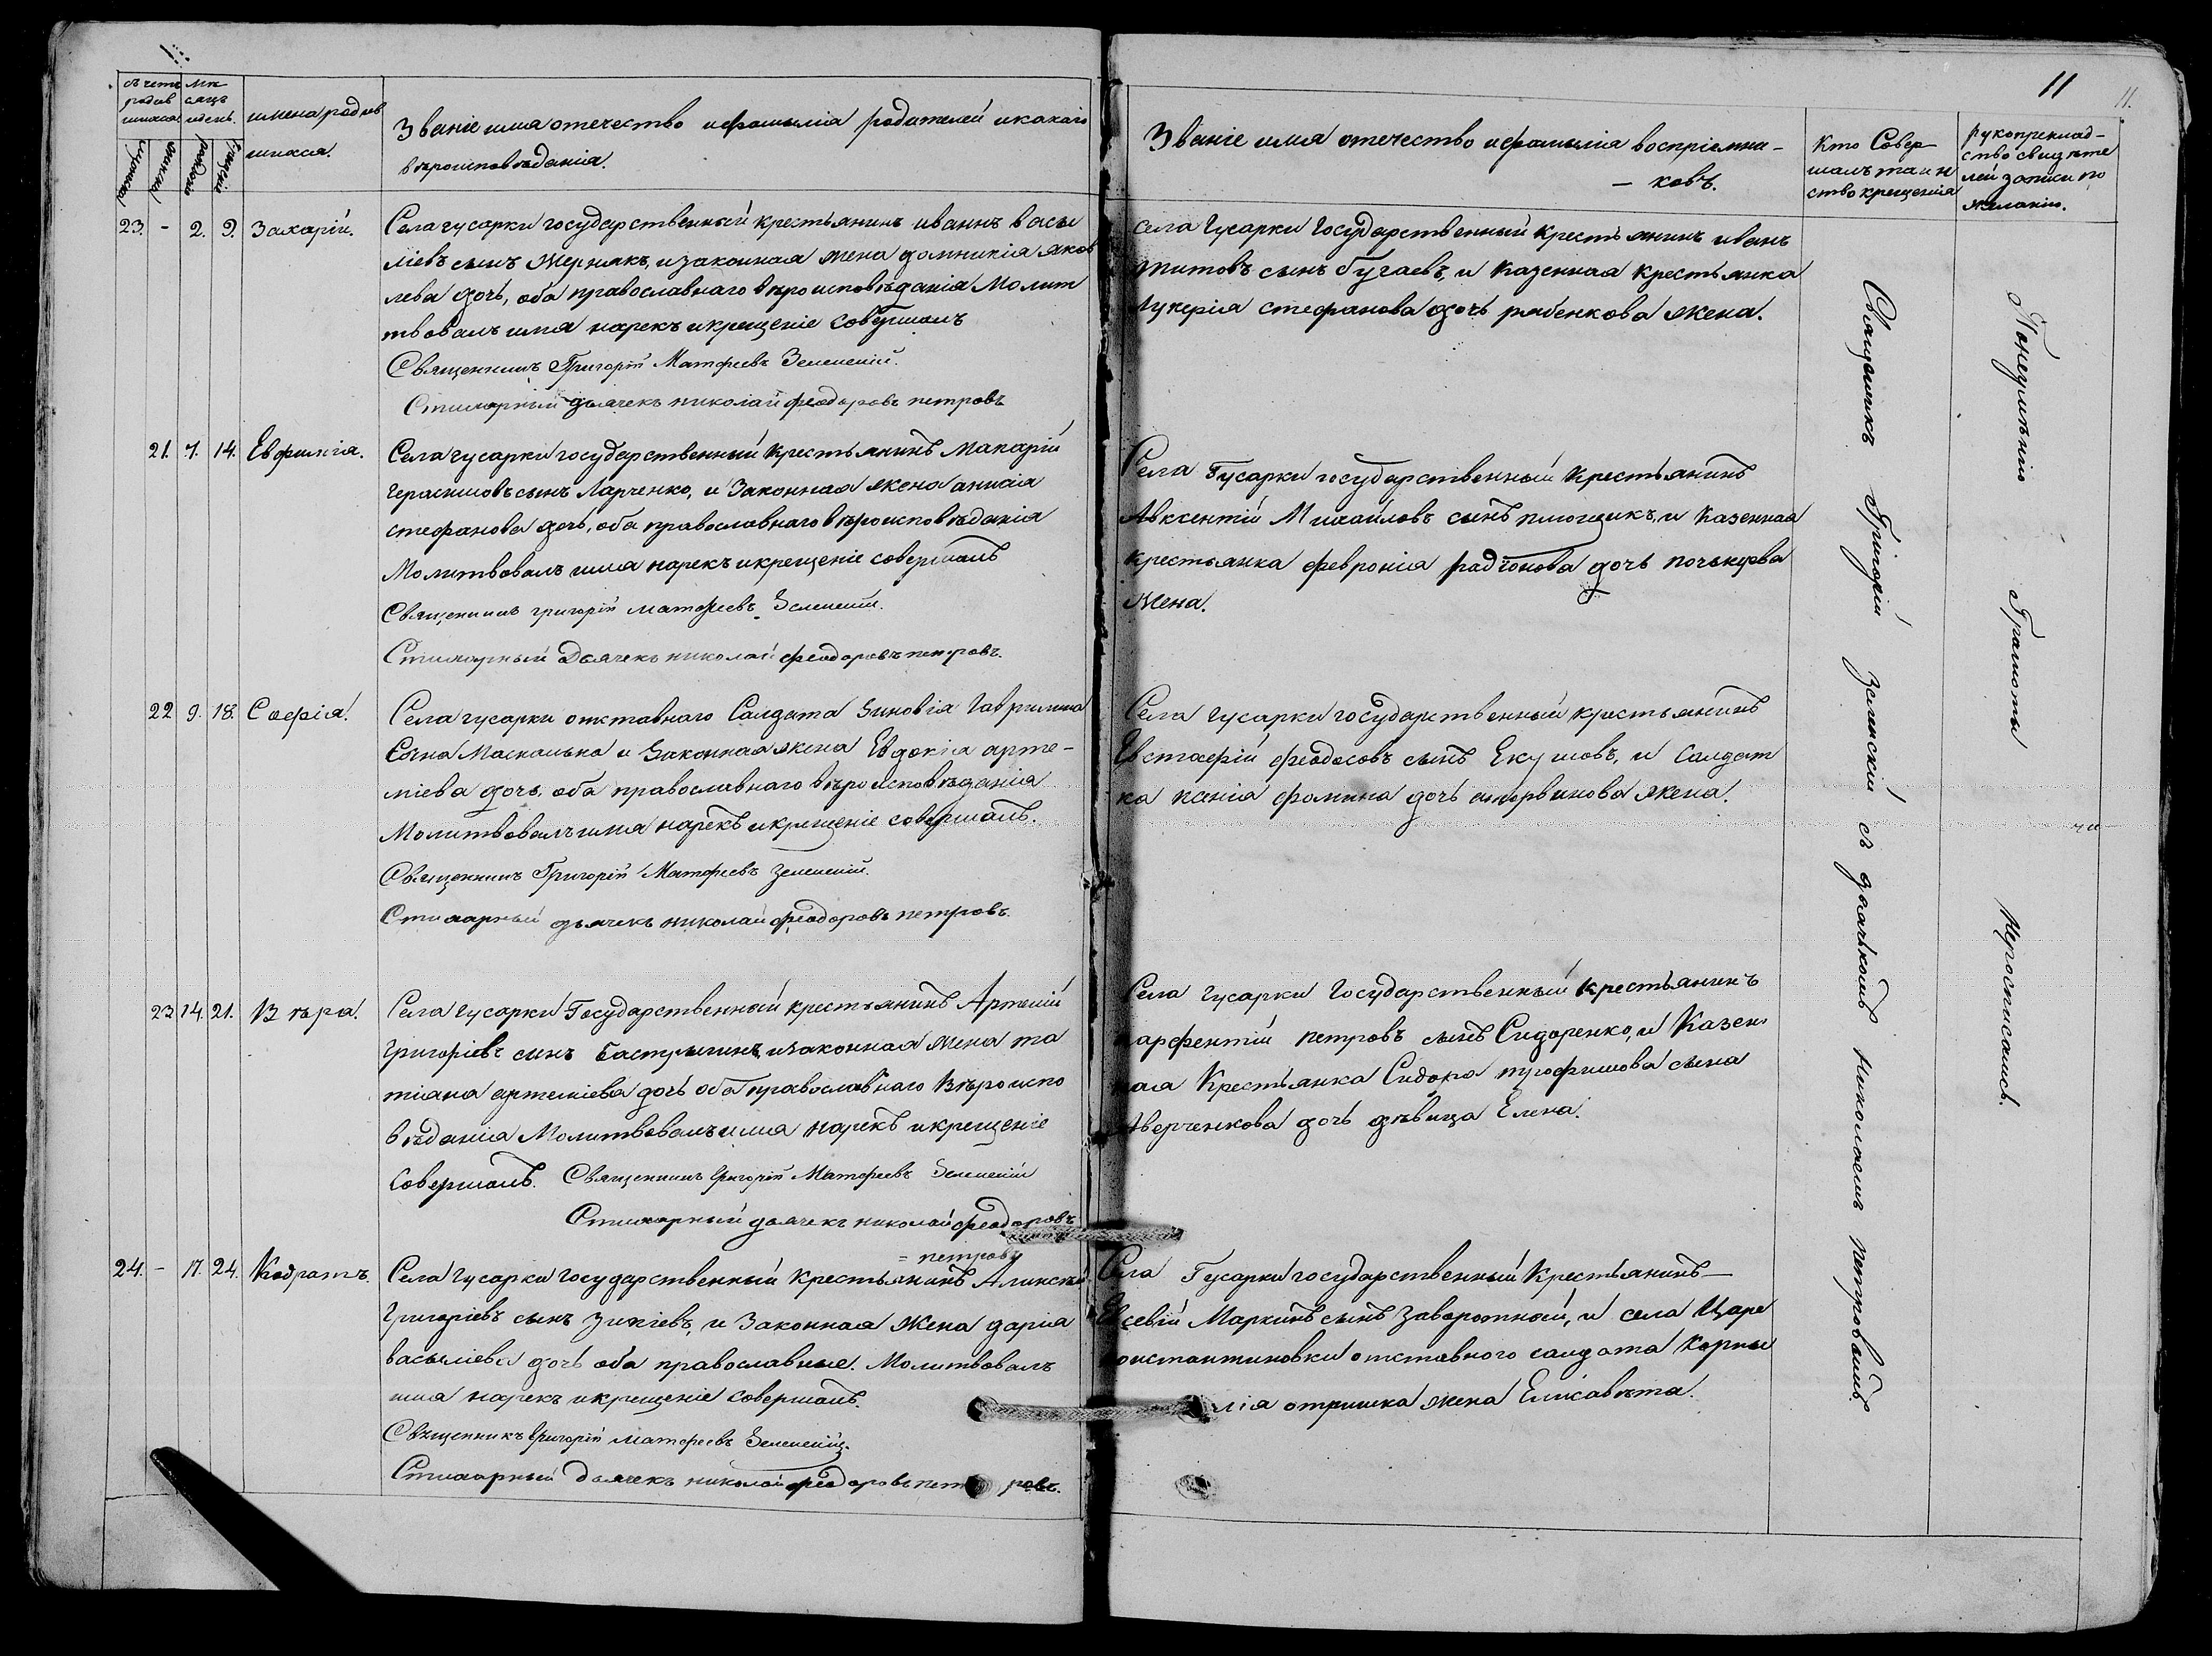 11
11.
счетъ родившихся
мѣсяцъ и день.
имена родив
шихся.
Званіе имя отечество и фамилія родителей и какаго
вѣроисповѣданія.
Званіе имя отечество и фамилія воспріемни-
- ковъ.
Кто Совер
шалъ таин
ство крещенія
рукоприклад-
ство свидѣте
лей записи по
желанію.
23. - 2. 9. Захарій.
Села гусарки государственный крестьянинъ иваннъ васи
ліевъ сынъ Жернакъ, и законная жена домникія яков
лева дочь, оба православнаго вѣроисповѣданія Молит
твовалъ имя нарекъ и крещеніе совершалъ
Священникъ Григорій Матфеевъ Зеленскій.
Стихарный дьячекъ николай феодоровъ петровъ
села Гусарки Государственный крестьянинъ иванъ
титовъ сынъ бугаевъ, и Казенная крестьянка
лукерія стефанова дочь рябенкова жена.
21. 7. 14. Евфимія.
Села гусарки государственный крестьянинъ Макарій
Герасимовъ сынъ Ларченко, и Законная жена анисія
стефанова дочь, оба православнаго вѣроисповѣданія
Молитвовалъ имя нарекъ и крещеніе совершалъ
Священникъ григорій матфеевъ Зеленскій.
Стихарный Дьячекъ николай феодоровъ петровъ.
Села Гусарки государственный Крестьянинъ
Авксентій Михайловъ сынъ, и Казенная
крестьянка февронія радіонова дочь
жена.
22 9. 18. Софія.
Села гусарки отставнаго Салдата Зиновія Гаврилина
Сына и Законная жена Евдокія арте-
міева дочь, оба православнаго вѣроисповѣданія
Молитвовалъ имя нарекъ и крещеніе совершалъ.
Священникъ Григорій Матфеевъ Зеленскій.
Стихарный дьячекъ николай феодоровъ петровъ.
Села гусарки государственный крестьянинъ
Евстафій феодосовъ сынъ, и Салдат
ка фомина дочь жена.
23 14. 21. Вѣра.
Села гусарки Государственный крестьянинъ Артемій
Григоріевъ сынъ и законная жена та
тіана артеміева дочь оба православнаго Вѣроиспо
вѣданія Молитвовалъ имя нарекъ и крещеніе
совершалъ. Священникъ Григорій Матфеевъ Зеленскій
Стихарный дьячекъ николай феодоровъ
= петровъ
Села гусарки Государственный крестьянинъ
парфентій петровъ сынъ Сидоренко, и Казен
ная Крестьянка Сидора трофимова сына
Аверченкова дочь дѣвица Елена.
24. - 17. 24. Кодратъ.
Села гусарки государственный крестьянинъ
Григоріевъ сынъ, и Законная жена дарія
василіева дочь оба православные. Молитвовалъ
имя нарекъ и крещеніе совершалъ.
Священникъ Григорій Матфеевъ Зеленскій.
Стихарный Дьячекъ николай феодоровъ петровъ.
Села Гусарки государственный Крестьянинъ -
Евсевій Маркинъ сынъ Заворотной, и села Царе
константиновки отставного салдата Корни
лія отришка жена Елисавѣта.
Священикъ Григорій Зеленскій съ дьячькомъ Николаемъ петровымъ
Понеумѣнію Грамоты неросписались.